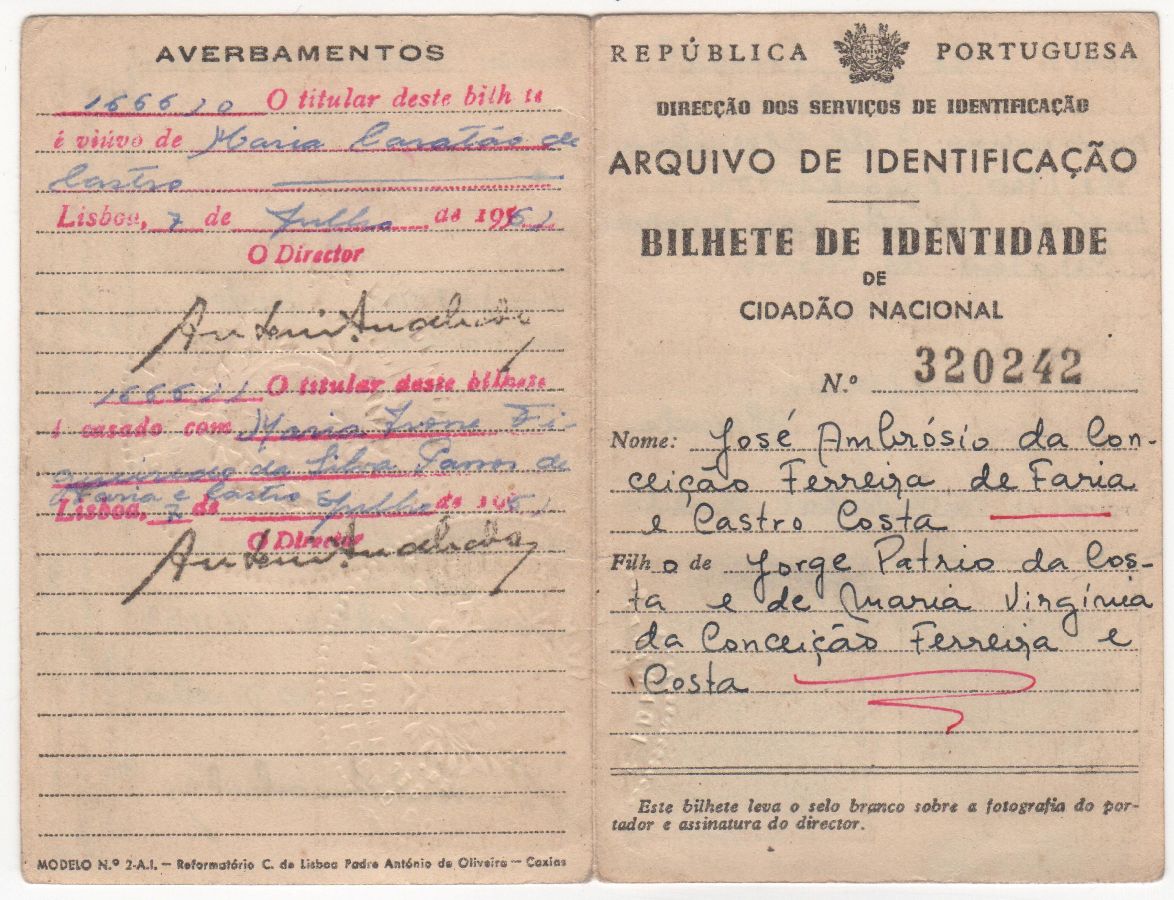 AVERBAMENTOS
166610 O titular deste bilhete
é viúvo de Maria de
Castro
Lisboa, 7 de Julho de 1961
O Director
166611 O titular deste bilhete
é casado com Maria Ivone Fi-
gueiredo da Silva de
Faria e Castro
Lisboa, 7 de Julho de 1961
O Director
MODELO N.º 2-A.I. — Reformatório C. de Lisboa Padre António de Oliveira — Caxias
REPÚBLICA PORTUGUESA
DIRECÇÃO DOS SERVIÇOS DE IDENTIFICAÇÃO
ARQUIVO DE IDENTIFICAÇÃO
BILHETE DE IDENTIDADE
DE
CIDADÃO NACIONAL
N.º 320242
Nome: José Ambrósio da Con-
ceição Ferreira de Faria
e Castro Costa
Filho de Jorge Patrio da Cos-
ta e de Maria Virgínia
da Conceição Ferreira e
Costa
Este bilhete leva o selo branco sobre a fotografia do por-
tador e assinatura do director.